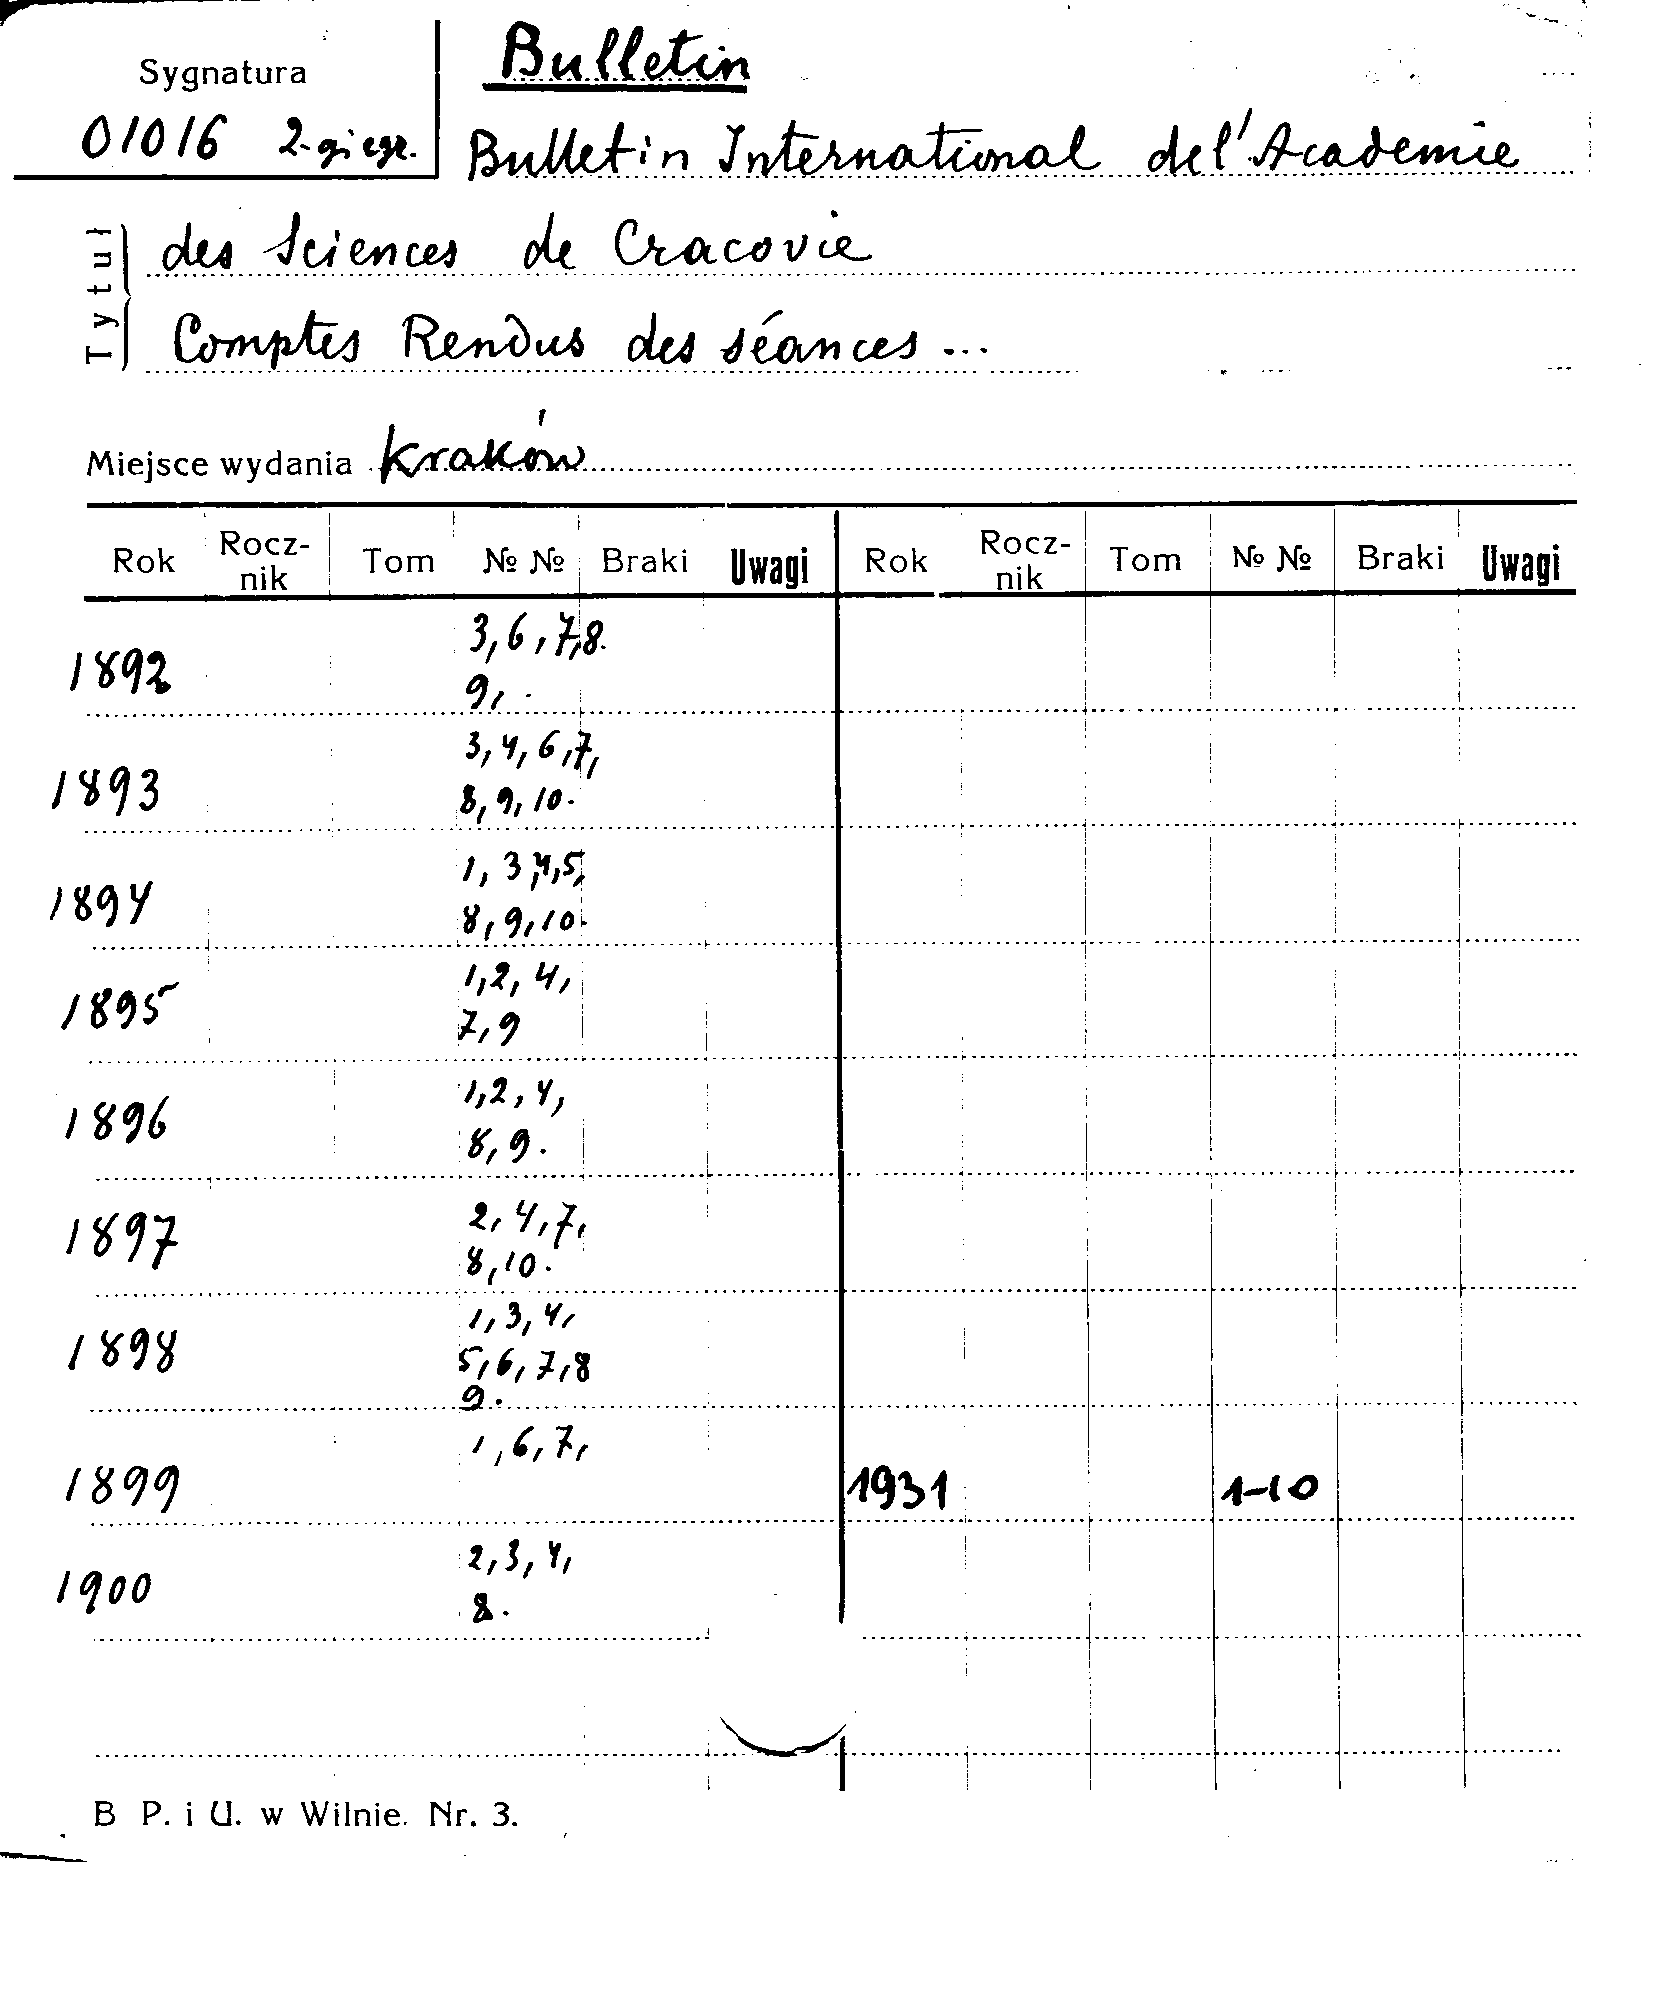 Sygnatura
01016 2-gi egz.
Bulletin
Bulletin International de l'Academie
des Sciences de Cracovie
Comptes Rendus des séances ...
Tytuł
Miejsce wydania Kraków
Rok Rocz-nik Tom № № Braki Uwagi Rok Rocz-nik Tom № № Braki Uwagi
1892 3, 6, 7, 8.
9, .
1893 3, 4, 6, 7,
8, 9, 10.
1894 1, 3, 4, 5,
8, 9, 10.
1895 1, 2, 4,
7, 9
1896 1, 2, 4,
8, 9.
1897 2, 4, 7,
8, 10.
1898 1, 3, 4,
5, 6, 7, 8
9.
1899 1, 6, 7, 1931 1-10
1900 2, 3, 4,
8.
B P. i U. w Wilnie. Nr. 3.